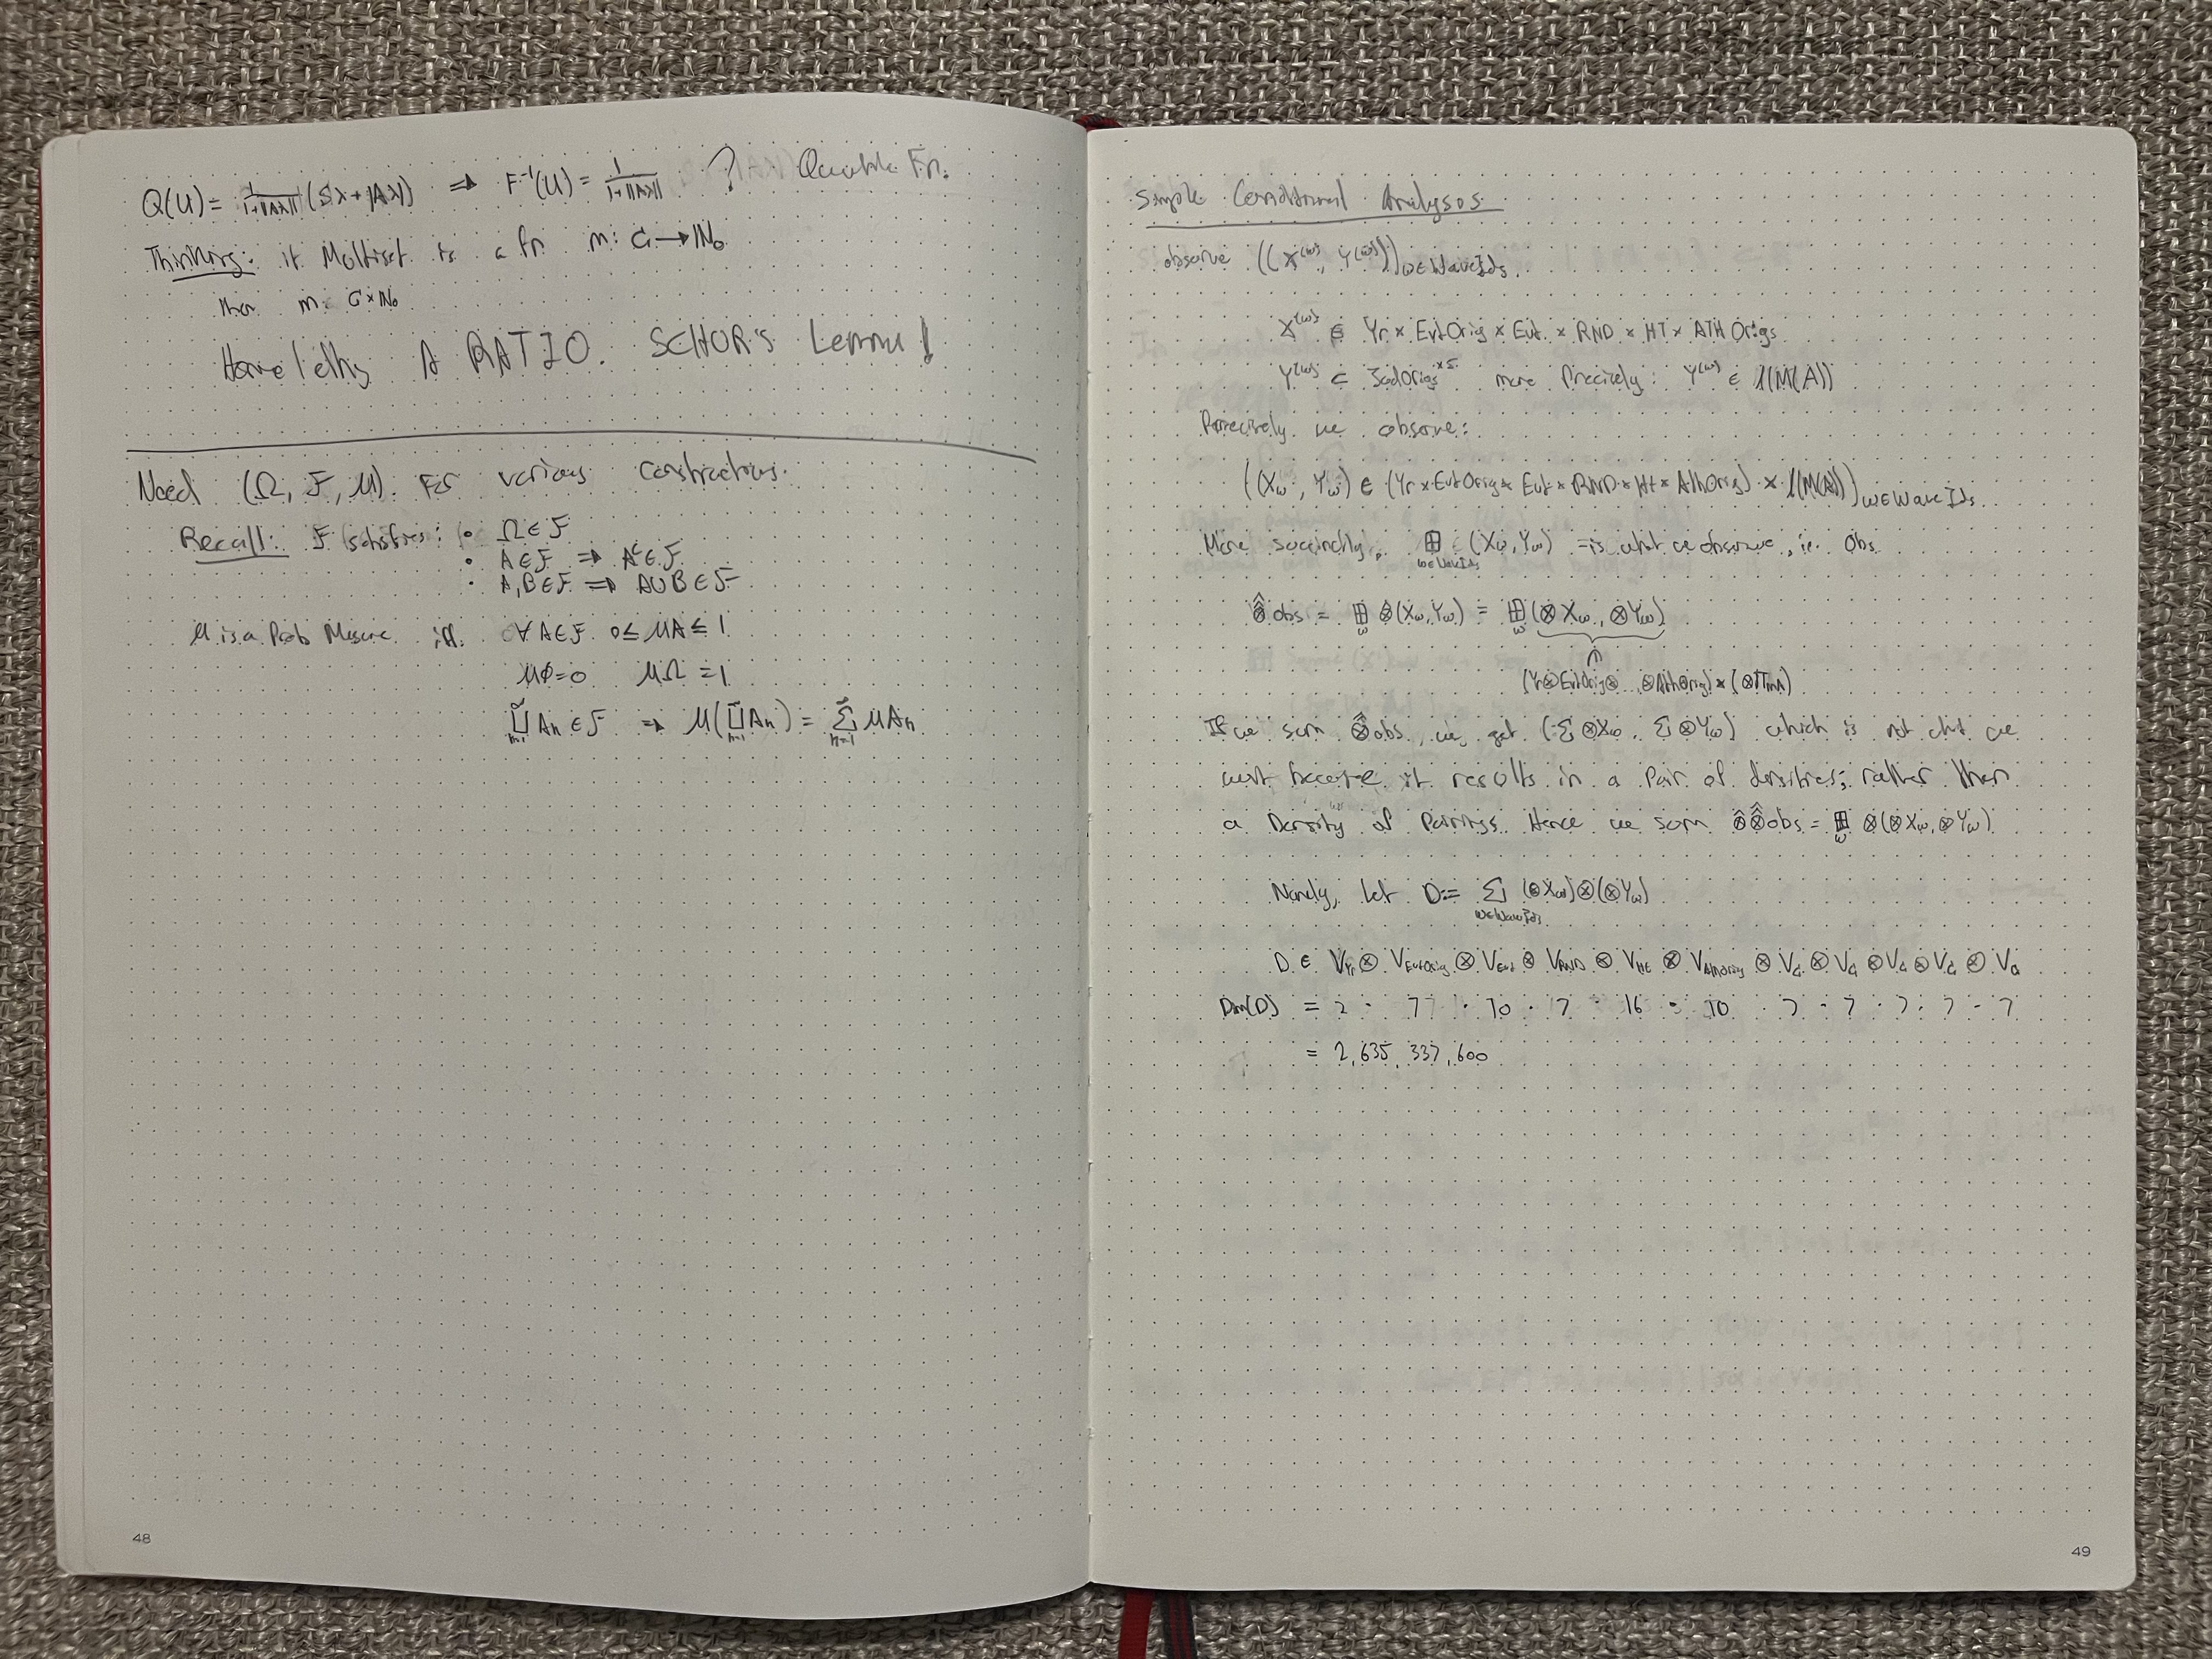 Q(U) = 1/(1+||Ax||) (Sx + |Ax|) ⇒ F⁻¹(U) = 1/(1+||Ax||) ? Quantile Fn.
Thinking: if Multiset is a fn m: G → ℕ₀
then m: G × ℕ₀
Home / A RATIO. SCHOR's Lemma!
Need (Ω, F, μ) For various constructions.
Recall: F satisfies: • Ω ∈ F
• A ∈ F ⇒ Aᶜ ∈ F
• A, B ∈ F ⇒ A∪B ∈ F
μ is a Prob Mesure if. ∀A∈F 0 ≤ μA ≤ 1
μ∅ = 0 μΩ = 1
∐ Aₙ ∈ F ⇒ μ(∐ Aₙ) = Σ μAₙ
48
Simple Conditional Analysis
observe ((X^(ω), Y^(ω)))ω∈WaveIds.
X^(ω) ∈ Yr × EvtOrig × Evt × RND × HT × ATHOrigs
Y^(ω) ∈ more Precisely: Y^(ω) ∈ (M(A))
Precisely we observe:
((Xω, Yω) ∈ (Yr × EvtOrig × Evt × RND × Ht × AthOrig) × (M(A)))ω∈WaveIds
More succinctly, ⊞ (Xω, Yω) is what we observe, ie. obs
ω∈WaveIds
⊗̂obs = ⊞ ⊗(Xω, Yω) = ⊞ (⊗Xω, ⊗Yω)
(Yr⊗EvtOrig⊗...⊗AthOrig) × (⊗)
If we sum ⊗̂obs, we get (Σ⊗Xω, Σ⊗Yω) which is not what we
want because it results in a Pair of densities; rather then
a Density of Pairings. Hence we sum ⊗⊗̂obs = ⊞ ⊗(⊗Xω, ⊗Yω)
Namely, let D := Σ (⊗Xω)⊗(⊗Yω)
ω∈WaveIds
D ∈ V_Yr ⊗ V_EvtOrig ⊗ V_Evt ⊗ V_RND ⊗ V_Ht ⊗ V_AthOrig ⊗ V_a ⊗ V_a ⊗ V_a ⊗ V_a ⊗ V_a
Dim(D) = 2 · 7 · 10 · 7 · 16 · 10 · 7 · 7 · 7 · 7 · 7
= 2,635,337,600
49